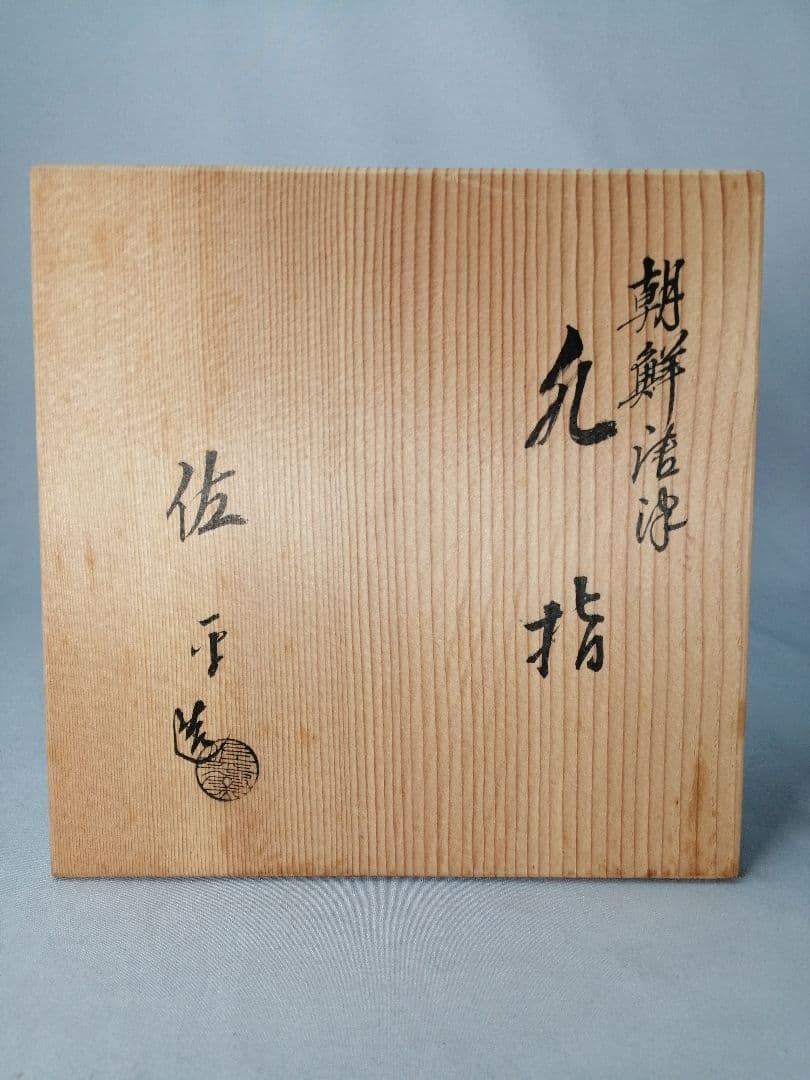 朝鮮唐津
水指
佐平造